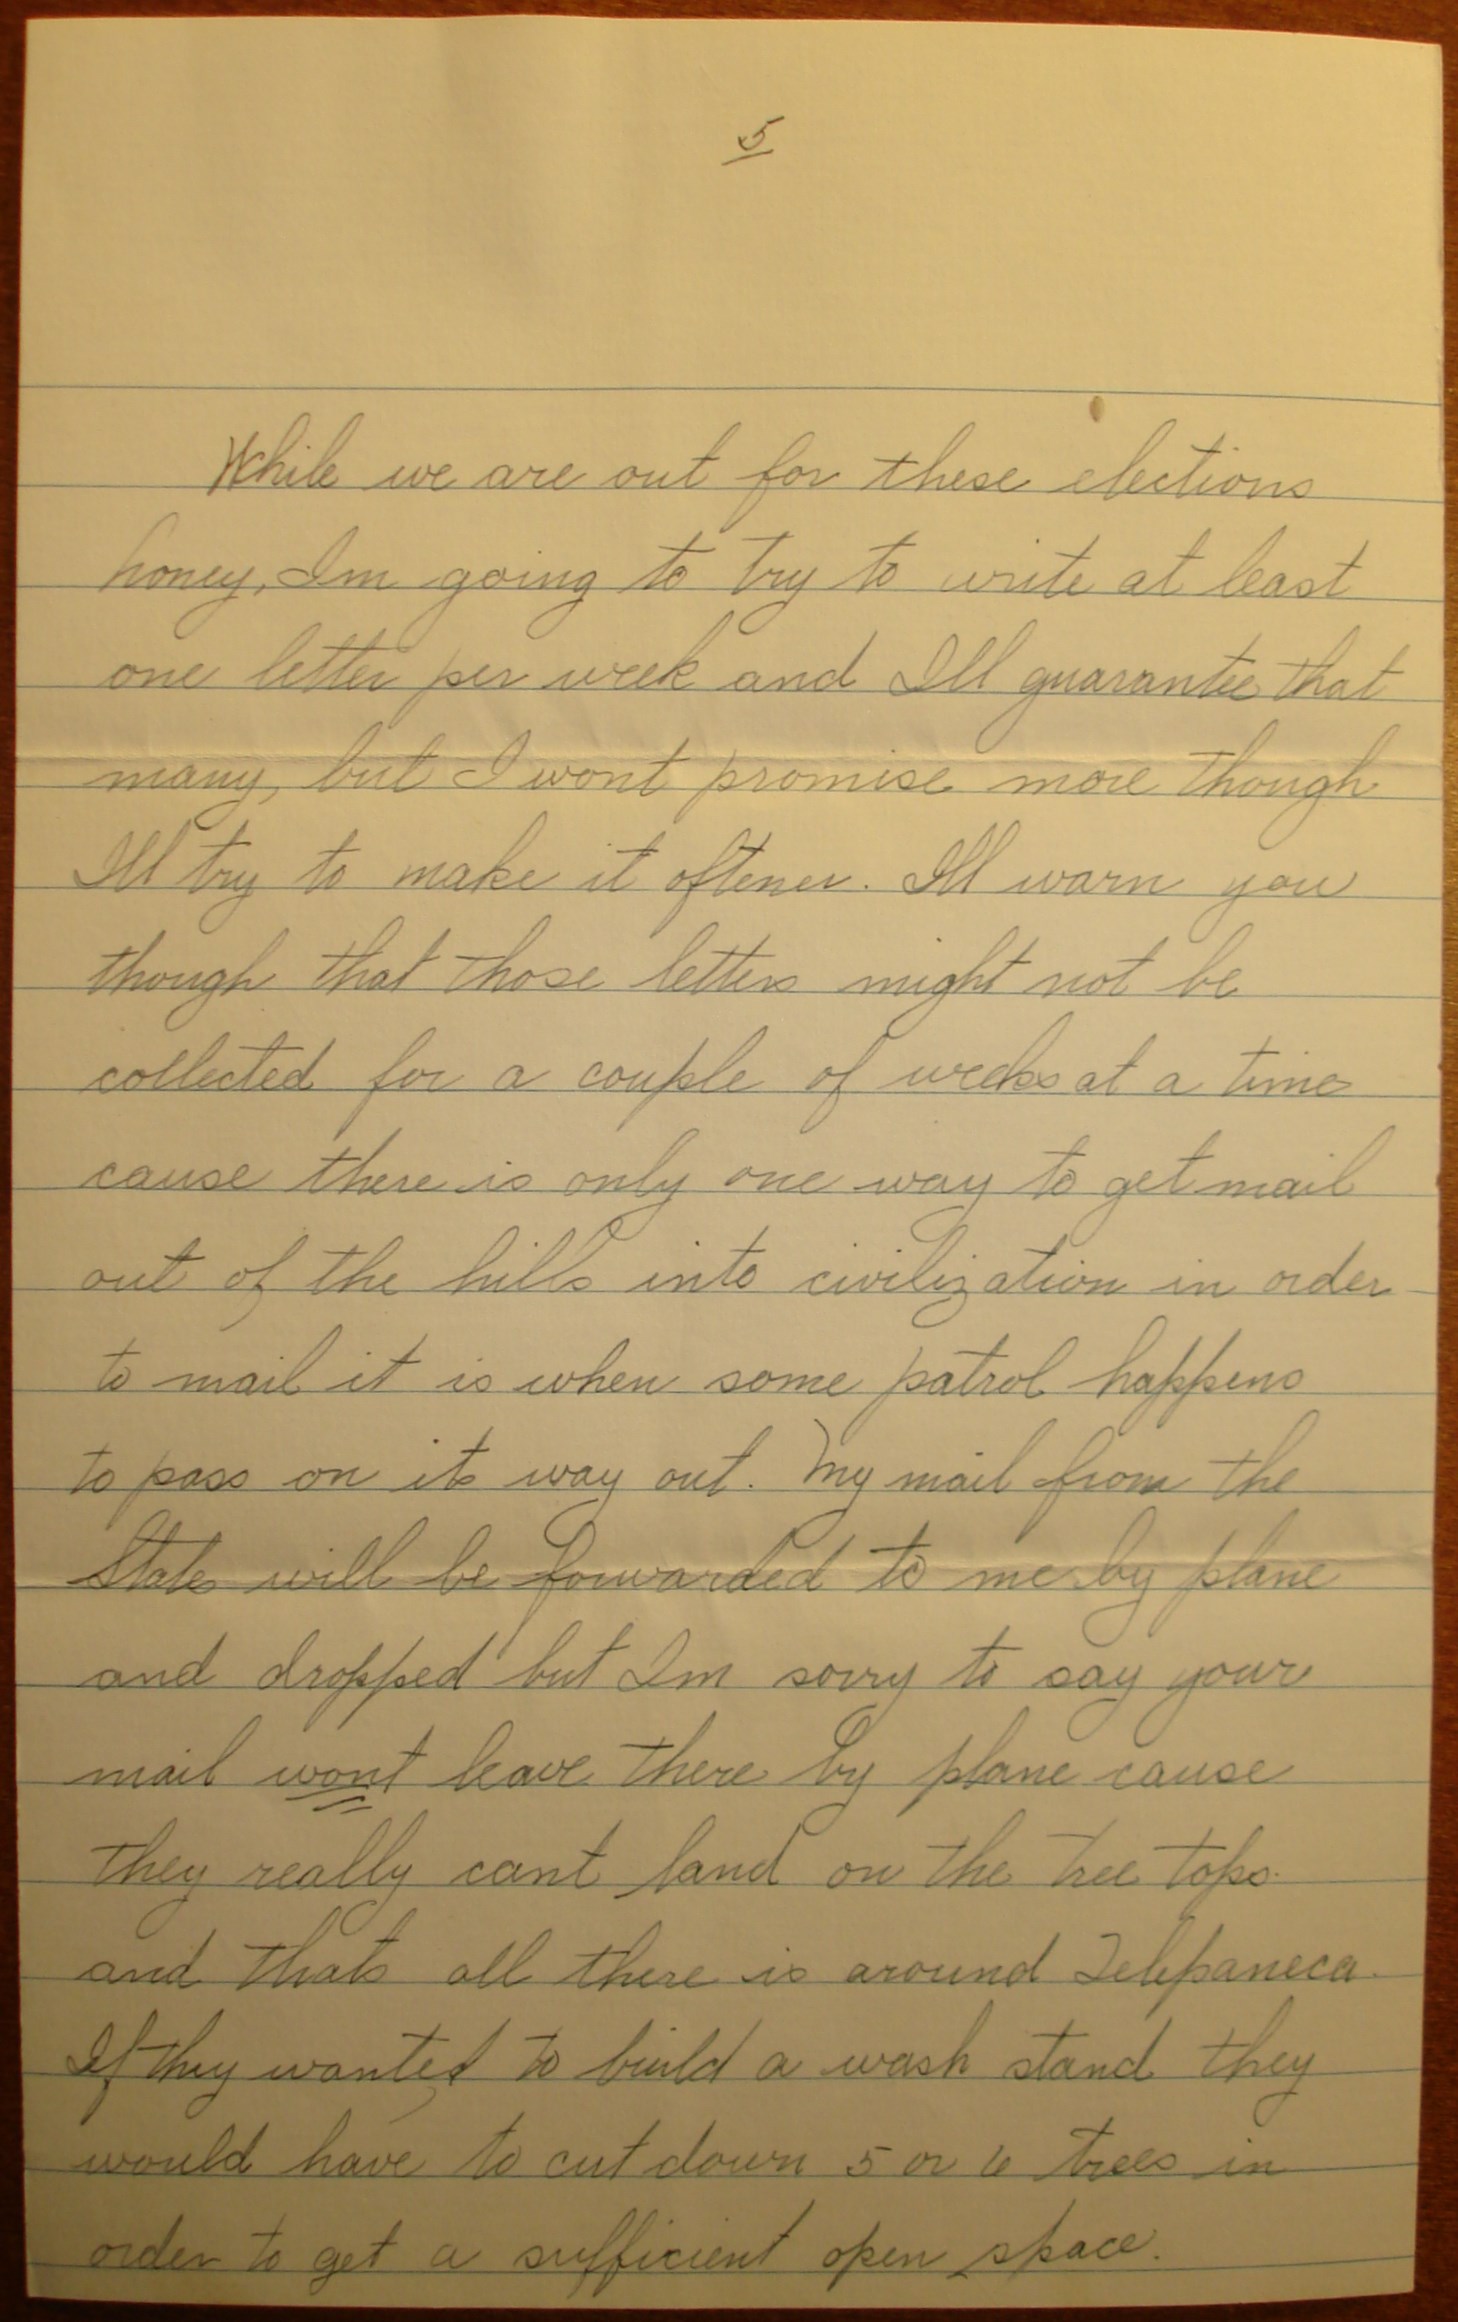 5
While we are out for these elections
honey, Im going to try to write at least
one letter per week and Ill guarantee that
many, but I wont promise more though
Ill try to make it oftener. Ill warn you
though that those letters might not be
collected for a couple of weeks at a time
cause there is only one way to get mail
out of the hills into civilization in order
to mail it is when some patrol happens
to pass on its way out. My mail from the
States will be forwarded to me by plane
and dropped but Im sorry to say your
mail wont leave there by plane cause
they really cant land on the tree tops
and thats all there is around Telepaneca.
If they wanted to build a wash stand they
would have to cut down 5 or 6 trees in
order to get a sufficient open space.